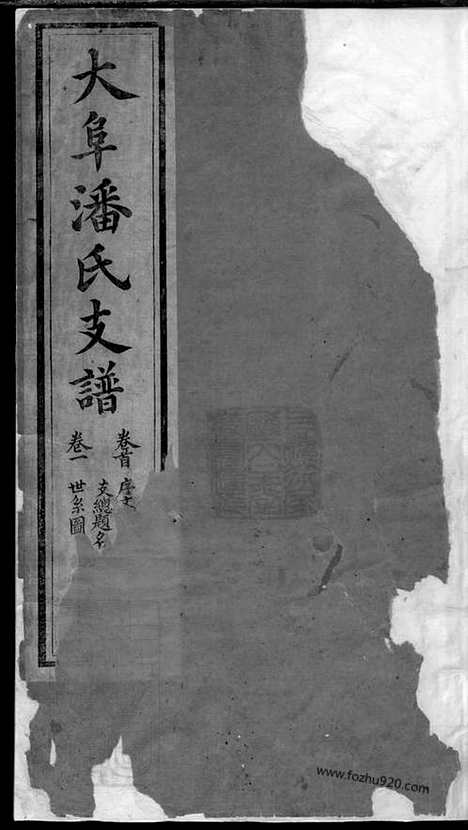 大阜潘氏支譜
卷首 序文
支總題名
卷一 世系圖
www.fozhu920.com